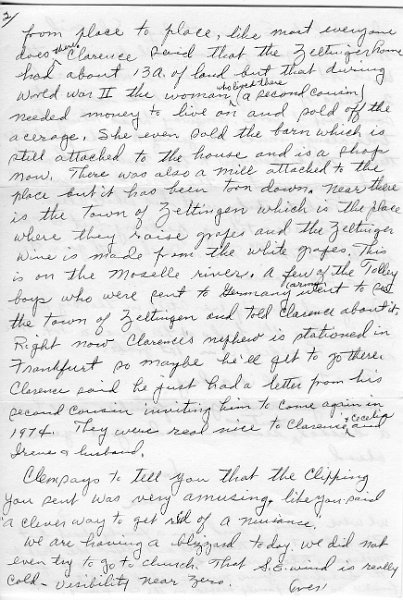 2/
from place to place, like most everyone
does there. Clarence said that the Zeltinger Home
had about 13a. of land but that during
World War II the woman who lived there (a second cousin)
needed money to live on and sold off the
acerage. She even sold the barn which is
still attached to the house and is a shop
now. There was also a mill attached to the
place but it has been torn down. Near there
is the Town of Zeltingen which is the place
where they raise grapes and the Zeltinger
Wine is made from the white grapes. This
is on the Moselle river. A few of the Tolley
boys who were sent to Germany (army) went to see
the town of Zeltingen and told Clarence about it.
Right now Clarence's nephew is stationed in
Frankfurt so maybe he'll get to go there.
Clarence said he just had a letter from his
second cousin inviting him to come again in
1974. They were real nice to Clarence & Cecelia and
Irene & husband.
Clem says to tell you that the clipping
you sent was very amusing. like you said
"a clever way to get rid of a nuisance.
We are having a blizzard today. We did not
even try to go to church. That S.E. wind is really
cold - visibility near zero.
(over)